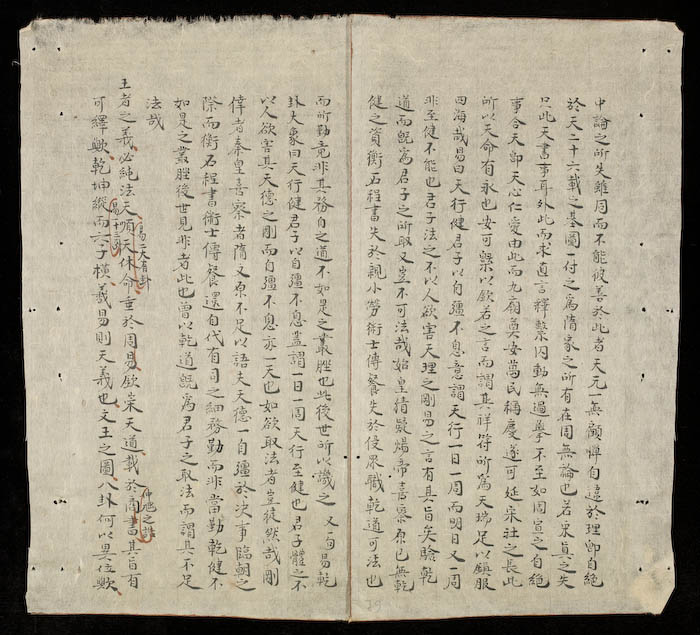 中論之所失雖同而不能彼善於此者天元一無顧憚自遠於理即自絕
於天二十六載之基圖一付之為隋家之所有在周無論也若宋真之失
只此天書事耳外此而求直言釋繫囚動無過舉不至如周宣之自絕
事合天即天心仁愛由此而九廟奠安萬民稱慶遂可延宋社之長此
所以天命有永也安可槩以欽若之言而謂其祥符所為天瑞足以鎮服
四海哉易曰天行健君子以自彊不息意謂天行一日一周而明日又一周
非至健不能也君子法之不以人欲害天理之剛易之言有其旨矣騐乾
道而旣為君子之所取又豈不可法哉始皇猜疑煬帝喜察原已無乾
健之資衡石程書失於親小勞衛士傳餐失於侵眾職乾道可法也
而所勤竟非其務自之道不如是之叢脞也此後世所以譏之 又問易乾
卦大象曰天行健君子以自彊不息蓋謂一日一周天行至健也君子體之不
以人欲害其天德之剛而自彊不息亦一天也如欲取法者豈徒然哉剛
偉者秦皇喜察者隋文原不足以語夫天德一自彊於決事臨朝之
際而衡石程書衛士傳餐還自代有司之細務勤而非當勤乾健不
如是之叢脞後世見非者此也曾以乾道旣為君子之取法而謂其不足
法哉
易大有卦
仲虺之誥
王者之義必純法天順天休命垂於周易欽崇天道載於商書其旨有
可繹歟乾坤縱而六子橫羲易則天義也文王之圖八卦何以異位歟